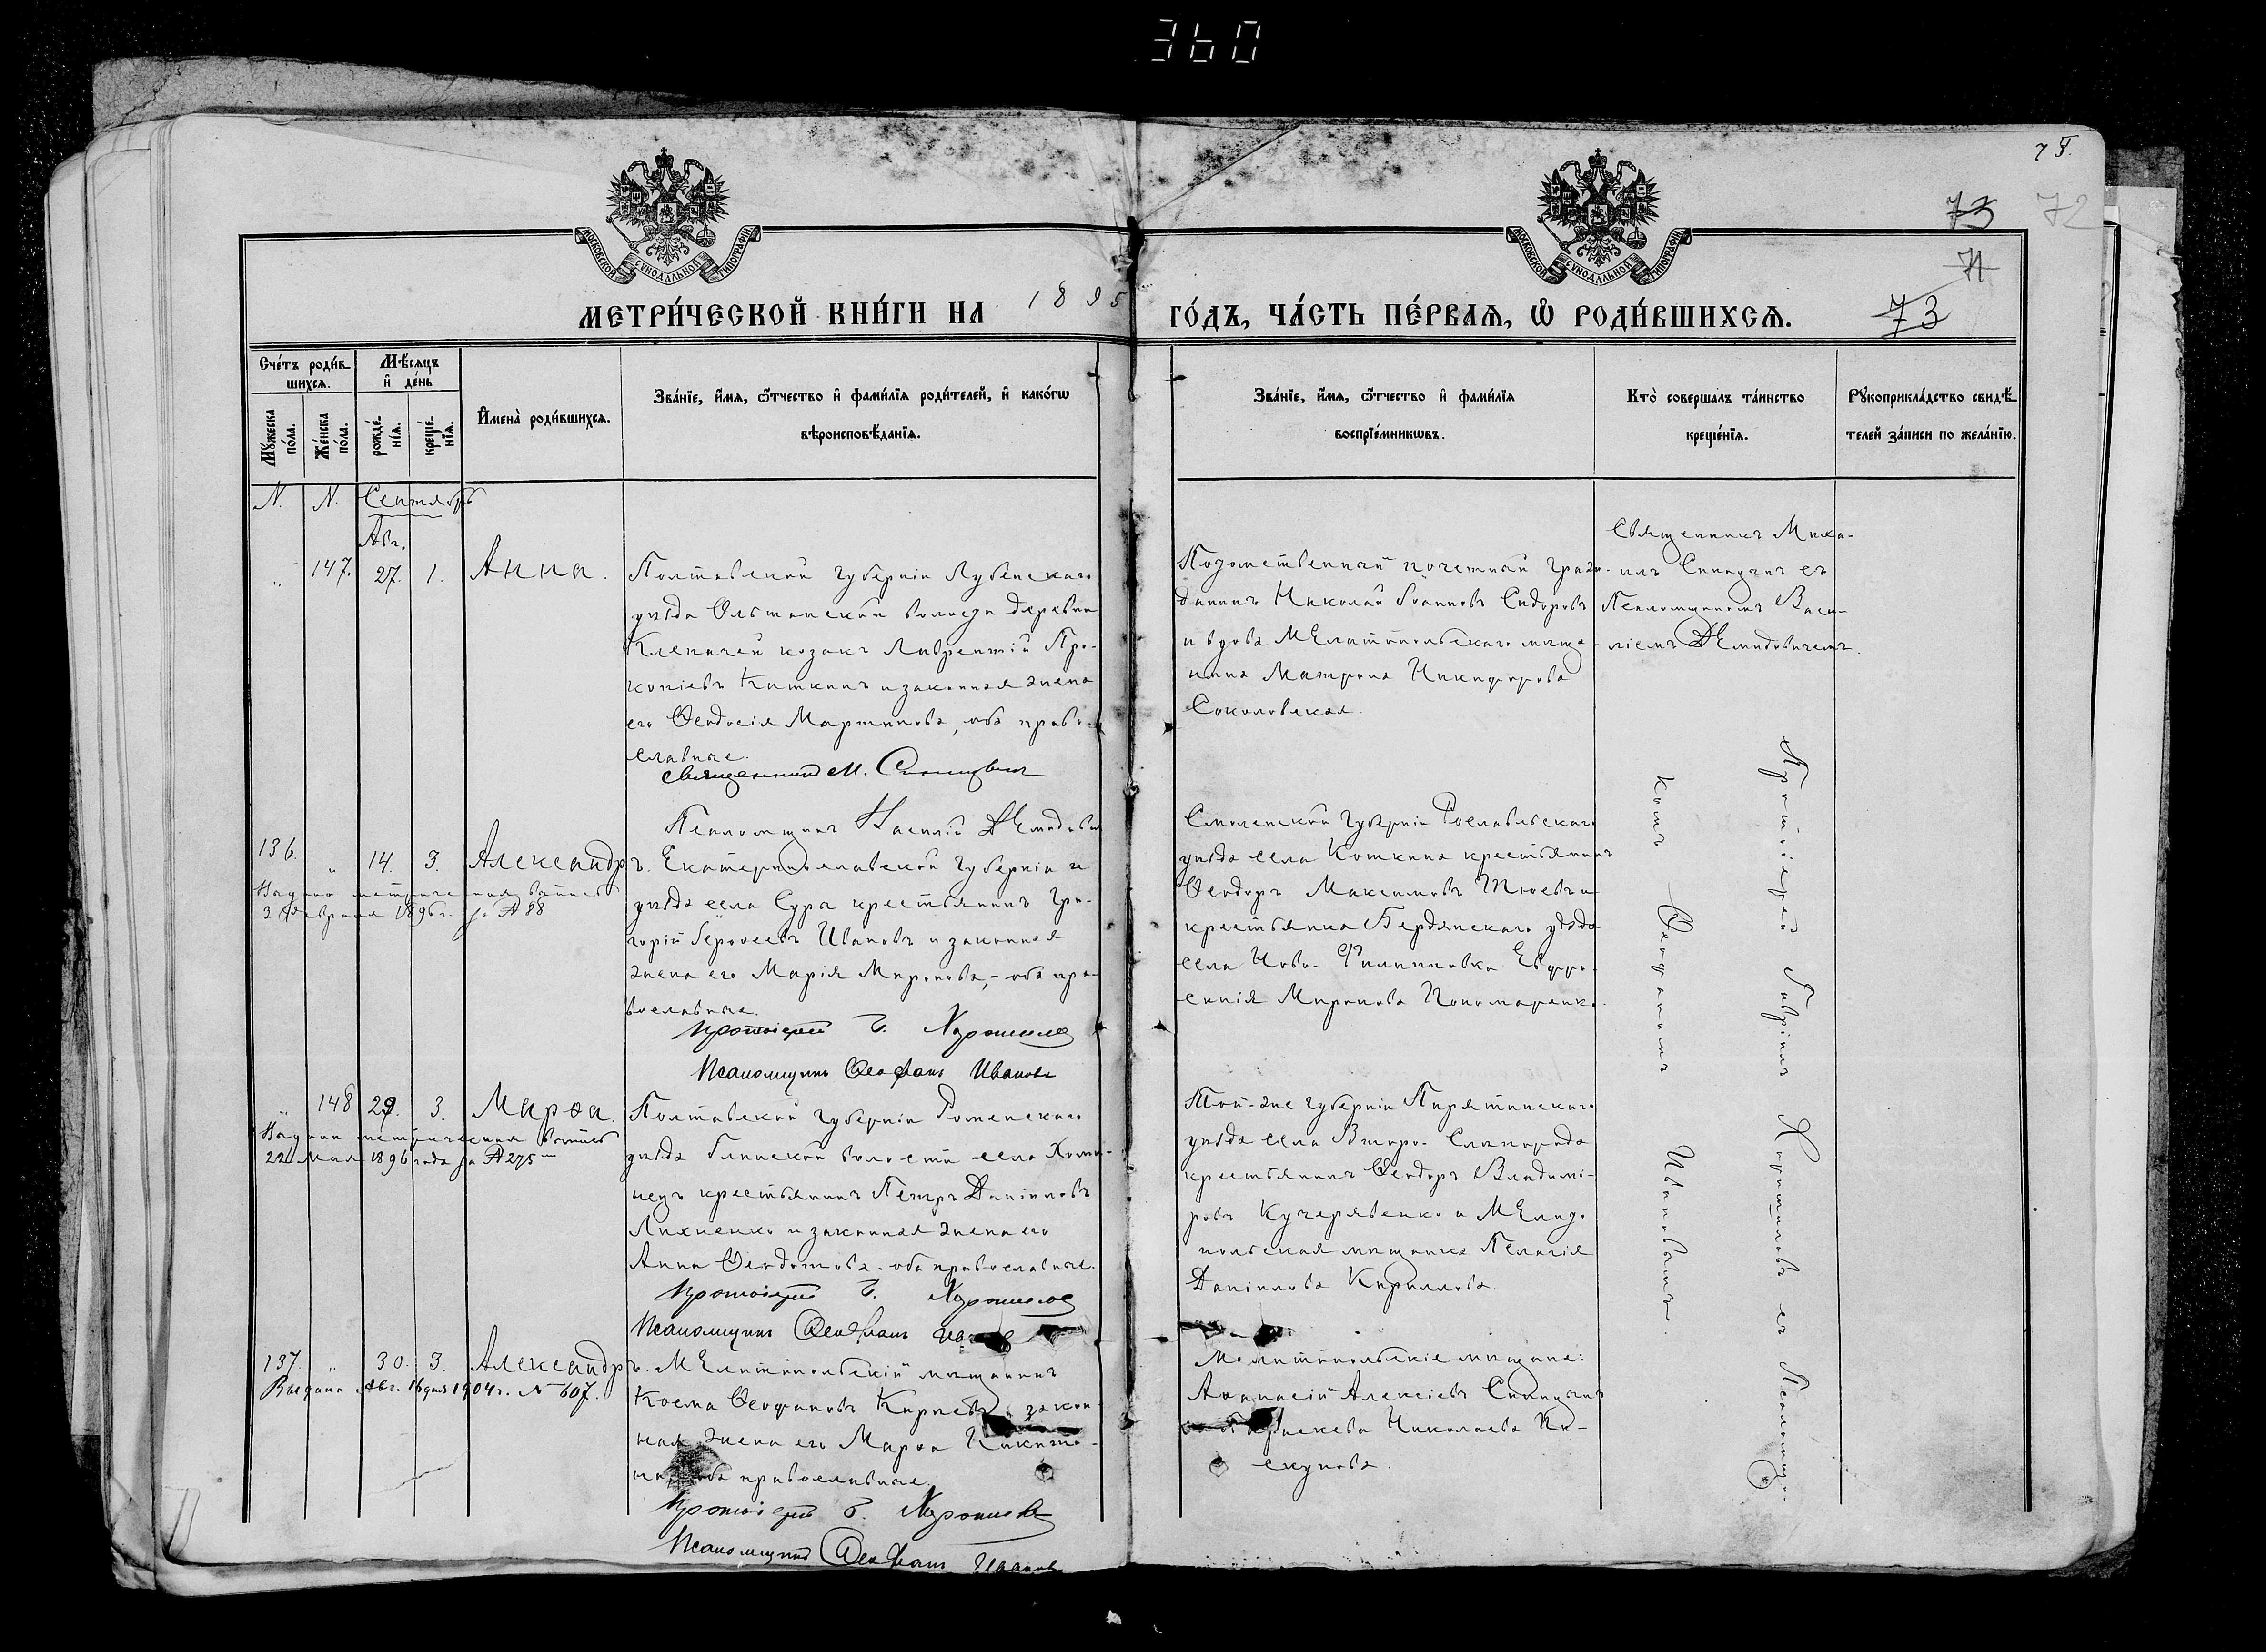 360
75.
73 72
71
МОСКОВСКОЙ СѴНОДАЛЬНОЙ ТИПОГРАФІИ
МОСКОВСКОЙ СѴНОДАЛЬНОЙ ТИПОГРАФІИ
МЕТРИ́ЧЕСКОЙ КНИ́ГИ НА 1895
ГО́ДЪ, ЧА́СТЬ ПЕ́РВАЯ, Ѡ҆ РОДИ́ВШИХСЯ.
73
Сче́тъ роди́в-
шихся.
Мꙋ́жеска
по́ла.
Же́нска
по́ла.
Мѣ́сяцъ
и҆ де́нь
рожде́-
нїя.
креще́-
нїя.
И҆мена̀ роди́вшихся.
Зва́нїе, и҆́мя, ѻ҆́тчество и҆ фами́лїя роди́телей, и҆ како́гѡ
вѣроисповѣ́данїя.
Зва́нїе, и҆́мя, ѻ҆́тчество и҆ фами́лїя
воспрїе́мникѡвъ.
Кто̀ соверша́лъ та́инство
креще́нїя.
Рꙋкоприкла́дство свидѣ́-
телей за́писи по жела́нїю.
N. N. Сентябрь
Авг.
„ 147. 27. 1. Анна.
Полтавской губерніи Лубенскаго
уѣзда Ольшанской волости деревни
Клепачей козакъ Лаврентій Про-
копіевъ Киткинъ и законная жена
его Ѳеодосія Мартинова, оба право-
славные.
Священникъ М. Синицынъ
Псаломщикъ Василій Демидовичъ
Потомственный почетный граж-
данинъ Николай Іоанновъ Сидоровъ
и вдова Мелитопольскаго мѣща-
нина Матрона Никифорова
Соколовская.
Священникъ Миха-
илъ Синицынъ съ
Псаломщикомъ Васи-
ліемъ Демидовичемъ.
136. „ 14. 3. Александръ.
Выдана метрическая выпись
3 Февраля 1896 г. за № 88
Екатеринославской губерніи и
уѣзда села Суры крестьянинъ Гри-
горій Іероѳеевъ Ивановъ и законная
жена его Марія Миронова, - оба пра-
вославные.
Протоіерей Г. Хорошиловъ
Псаломщикъ Ѳеофанъ Ивановъ
Смоленской губерніи Рославльскаго
уѣзда села Кошкина крестьянинъ
Ѳеодоръ Максимовъ Тюевъ и
крестьянка Бердянскаго уѣзда
села Ново-Филиповка Евфро-
синія Миронова Пономаренко.
Протоіерей Гавріилъ Хорошиловъ съ Псаломщи-
комъ Ѳеофаномъ Ивановымъ.
„ 148 29. 3. Марѳа.
Выдана метрическая выпись
22 Мая 1896 года за № 275
Полтавской губерніи Роменскаго
уѣзда Глинской волости села Хоми-
нецъ крестьянинъ Петръ Даніиловъ
Лихненко и законная жена его
Анна Ѳеодотова. оба православные.
Протоіерей Г. Хорошиловъ
Псаломщикъ Ѳеофанъ
Той-же губерніи Пирятинскаго
уѣзда села Второ-Слѣпорода
крестьянинъ Ѳеодоръ Владимі-
ровъ Кучерявенко и Мелито-
польская мѣщанка Пелагія
Даніилова Кириллова.
137. „ 30. 3. Александръ.
Выдана Авг. 16 дня 1904 г. № 607.
Мелитопольскій мѣщанинъ
Косма Ѳеофановъ Кирѣевъ и закон-
ная жена его Марѳа Никити-
на, оба православные.
Протоіерей Г. Хорошиловъ
Псаломщикъ Ѳеофанъ Ивановъ
Мелитопольскіе мѣщане:
Аѳанасій Алексіевъ Синицынъ
и Параскева Николаева Пи-
скунова.